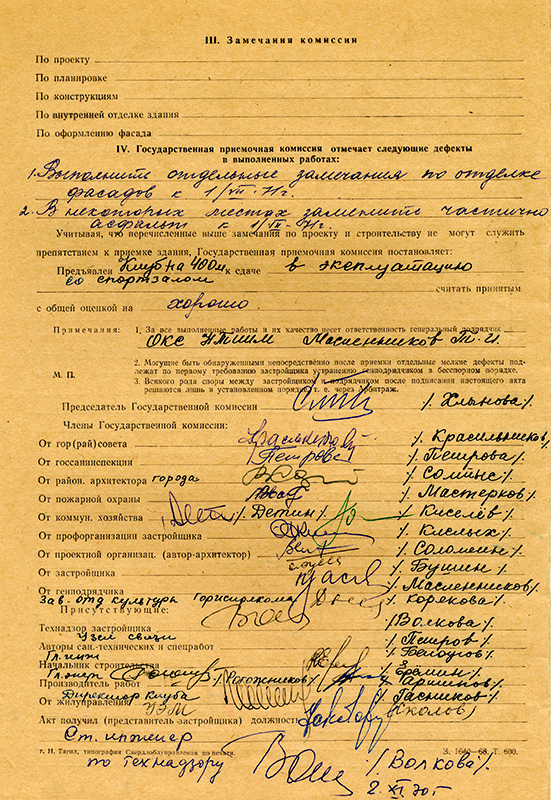 III. Замечания комиссии
По проекту
По планировке
По конструкциям
По внутренней отделке здания
По оформлению фасада
IV. Государственная приемочная комиссия отмечает следующие дефекты
в выполненных работах:
1. Выполнить отдельные замечания по отделке
фасадов к 1/VII-71г.
2. В некоторых местах заменить частично
асфальт к 1/VII-71г.
Учитывая, что перечисленные выше замечания по проекту и строительству не могут служить
препятствием к приемке здания, Государственная приемочная комиссия постановляет:
Предъявлен Клуб на 400м к сдаче в эксплуатацию
со спортзалом
считать принятым
с общей оценкой на хорошо
Примечания: 1. За все выполненные работы и их качество несет ответственность генеральный подрядчик
ОКС Масленников
2. Могущие быть обнаруженными непосредственно после приемки отдельные мелкие дефекты под-
лежат по первому требованию застройщика устранению генподрядчиком в бесспорном порядке.
М. П.
3. Всякого рода споры между застройщиком и подрядчиком после подписания настоящего акта
решаются лишь в установленном порядке, т. е. через Арбитраж.
Председатель Государственной комиссии /. Хлынова/.
Члены Государственной комиссии:
От гор(рай)совета /. Красильников/.
От госсанинспекции /. Петрова/.
От район. архитектора города /.
От пожарной охраны /. Мастерков/.
От коммун. хозяйства /. Детин/. /. Киселёв/.
От профорганизации застройщика /. Кислых/.
От проектной организац. (автор-архитектор) /. Соломеин/.
От застройщика /. Букин/.
От генподрядчика /. Масленников/.
Зав. отд культуры горисполкома /. Корякова/.
Присутствующие:
Технадзор застройщика /Волкова/.
Узел связи /. Петров/.
Авторы сан.-технических и спецработ /. Белоусов/.
Гл. инж
Начальник строительства /. Ерёмин/.
Гл. энерг /. Рогожников/.
Производитель работ
Директор клуба /. Гасников/.
От жилуправления УЭМ
Акт получил (представитель застройщика) должность
Ст. инженер
г. Н. Тагил, типография Свердлоблуправления по печати. З. 1640—68. Т. 600.
по технадзору /. Волкова/.
2. XI. 70г